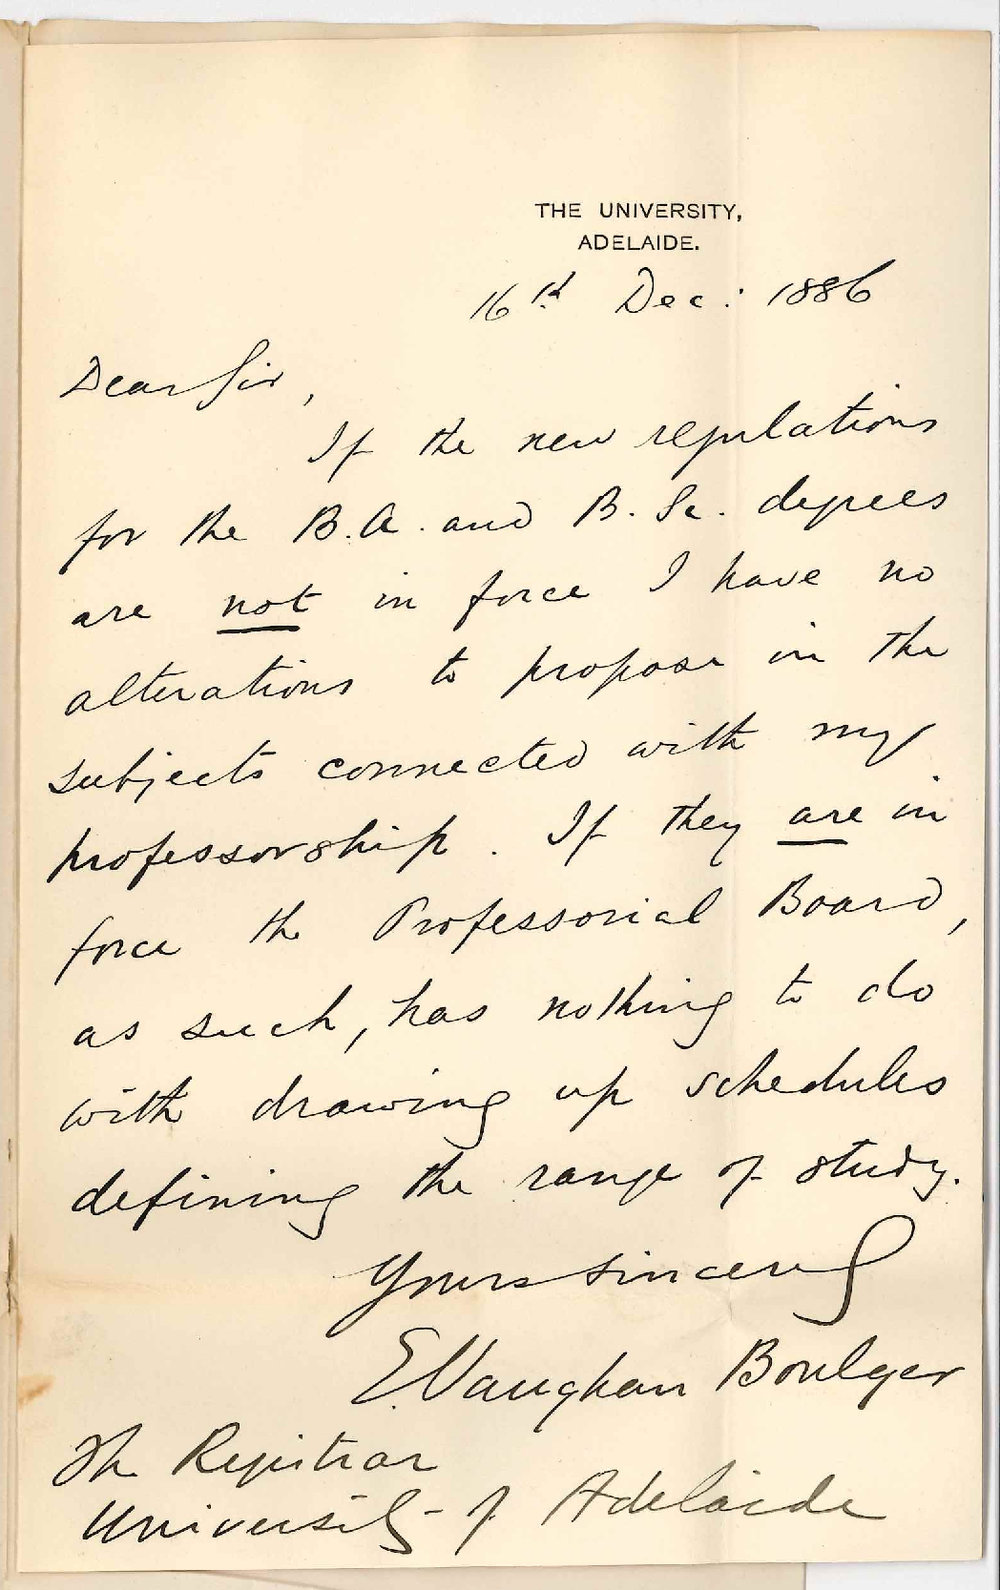 THE UNIVERSITY,
ADELAIDE.
16th Dec: 1886
Dear Sir,
If the new regulations
for the B.A. and B. Sc. degrees
are not in force I have no
alterations to propose in the
subjects connected with my
professorship. If they are in
force the Professorial Board,
as such, has nothing to do
with drawing up schedules
defining the range of study.
Yours sincerely
E. Vaughan Boulger
The Registrar
University of Adelaide